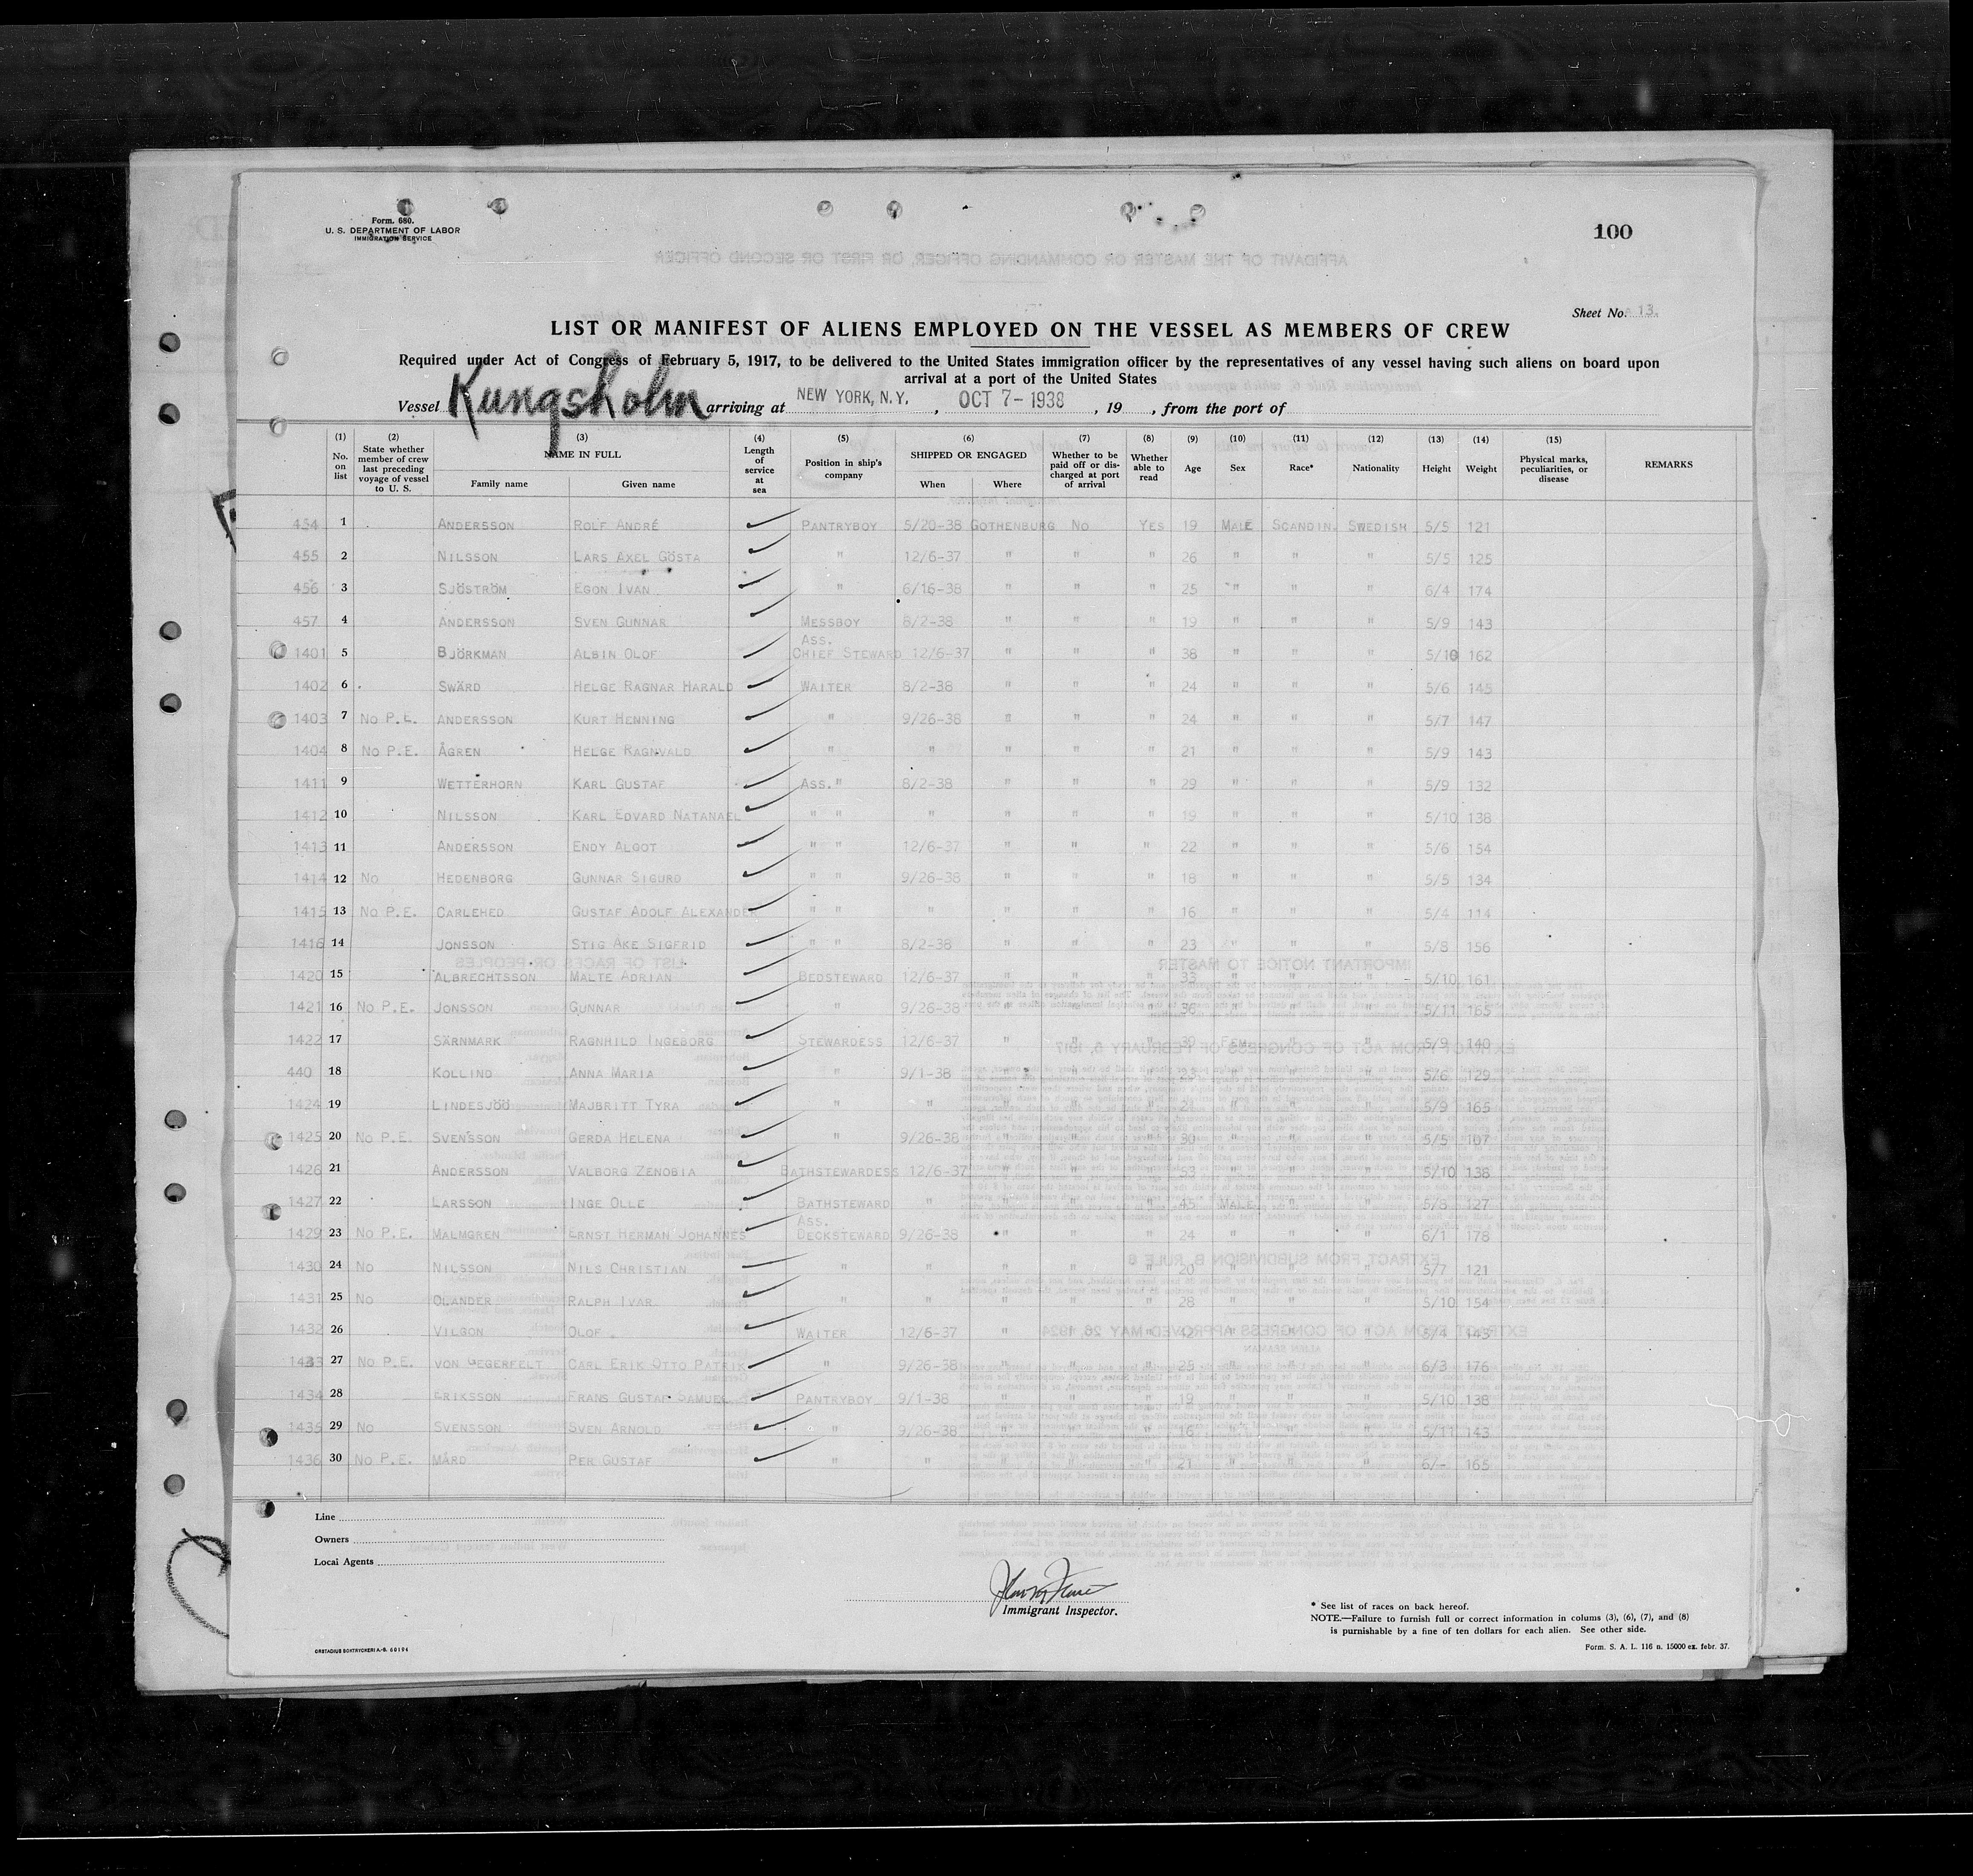 Form. 680.
U. S. DEPARTMENT OF LABOR
IMMIGRATION SERVICE
100
Sheet No. 13.
LIST OR MANIFEST OF ALIENS EMPLOYED ON THE VESSEL AS MEMBERS OF CREW
Required under Act of Congress of February 5, 1917, to be delivered to the United States immigration officer by the representatives of any vessel having such aliens on board upon
arrival at a port of the United States
Vessel Kungsholm arriving at NEW YORK, N.Y. , OCT 7-1938 , 19 , from the port of
(1) No. on list (2) State whether member of crew last preceding voyage of vessel to U. S. (3) NAME IN FULL Family name Given name (4) Length of service at sea (5) Position in ship's company (6) SHIPPED OR ENGAGED When Where (7) Whether to be paid off or discharged at port of arrival (8) Whether able to read (9) Age (10) Sex (11) Race* (12) Nationality (13) Height (14) Weight (15) Physical marks, peculiarities, or disease REMARKS
454 1 ANDERSSON ROLF ANDRÉ PANTRYBOY 5/20-38 GOTHENBURG NO YES 19 MALE SCANDIN. SWEDISH 5/5 121
455 2 NILSSON LARS AXEL GÖSTA " 12/6-37 " " " 26 " " " 5/5 125
456 3 SJÖSTRÖM EGON IVAN " 6/16-38 " " " 25 " " " 6/4 174
457 4 ANDERSSON SVEN GUNNAR MESSBOY 8/2-38 " " " 19 " " " 5/9 143
1401 5 BJÖRKMAN ALBIN OLOF ASS. CHIEF STEWARD 12/6-37 " " " 38 " " " 5/10 162
1402 6 SWÄRD HELGE RAGNAR HARALD WAITER 8/2-38 " " " 24 " " " 5/6 145
1403 7 NO P.E. ANDERSSON KURT HENNING " 9/26-38 " " " 24 " " " 5/7 147
1404 8 NO P.E. ÅGREN HELGE RAGNVALD " " " " " 21 " " " 5/9 143
1411 9 WETTERHORN KARL GUSTAF ASS. " 8/2-38 " " " 29 " " " 5/9 132
1412 10 NILSSON KARL EDVARD NATANAEL " " " " " " 19 " " " 5/10 138
1413 11 ANDERSSON ENDY ALGOT " " 12/6-37 " " " 22 " " " 5/6 154
1414 12 NO HEDENBORG GUNNAR SIGURD " " 9/26-38 " " " 18 " " " 5/5 134
1415 13 NO P.E. CARLEHED GUSTAF ADOLF ALEXANDER " " " " " " 16 " " " 5/4 114
1416 14 JONSSON STIG ÅKE SIGFRID " " 8/2-38 " " " 23 " " " 5/8 156
1420 15 ALBRECHTSSON MALTE ADRIAN BEDSTEWARD 12/6-37 " " " 33 " " " 5/10 161
1421 16 NO P.E. JONSSON GUNNAR " 9/26-38 " " " 36 " " " 5/11 165
1422 17 SÄRNMARK RAGNHILD INGEBORG STEWARDESS 12/6-37 " " " 39 FEM. " " 5/9 140
440 18 KOLLIND ANNA MARIA " 9/1-38 " " " " " " 5/6 129
1424 19 LINDESJÖÖ MAJBRITT TYRA " " " " " " " " 5/9 165
1425 20 NO P.E. SVENSSON GERDA HELENA " 9/26-38 " " " 30 " " " 5/5 107
1426 21 ANDERSSON VALBORG ZENOBIA BATHSTEWARDESS 12/6-37 " " " 53 " " " 5/10 138
1427 22 LARSSON INGE OLLE BATHSTEWARD " " " " 45 MALE " " 5/8 127
1429 23 NO P.E. MALMGREN ERNST HERMAN JOHANNES ASS. DECKSTEWARD 9/26-38 " " " 24 " " " 6/1 178
1430 24 NO NILSSON NILS CHRISTIAN " " " " " 20 " " " 5/7 121
1431 25 NO OLANDER RALPH IVAR " " " " " 28 " " " 5/10 154
1432 26 VILGON OLOF WAITER 12/6-37 " " " " " " 5/4 143
1433 27 NO P.E. VON GEGERFELT CARL ERIK OTTO PATRIK " 9/26-38 " " " 25 " " " 6/3 176
1434 28 ERIKSSON FRANS GUSTAF SAMUEL PANTRYBOY 9/1-38 " " " 19 " " " 5/10 138
1435 29 NO SVENSSON SVEN ARNOLD " 9/26-38 " " " 16 " " " 5/11 143
1436 30 NO P.E. MÅRD PER GUSTAF " " " " " 21 " " " 6/- 165
Line
Owners
Local Agents
Immigrant Inspector.
* See list of races on back hereof.
NOTE.—Failure to furnish full or correct information in colums (3), (6), (7), and (8)
is punishable by a fine of ten dollars for each alien. See other side.
Form. S. A. L. 116 n. 15000 ex. febr. 37.